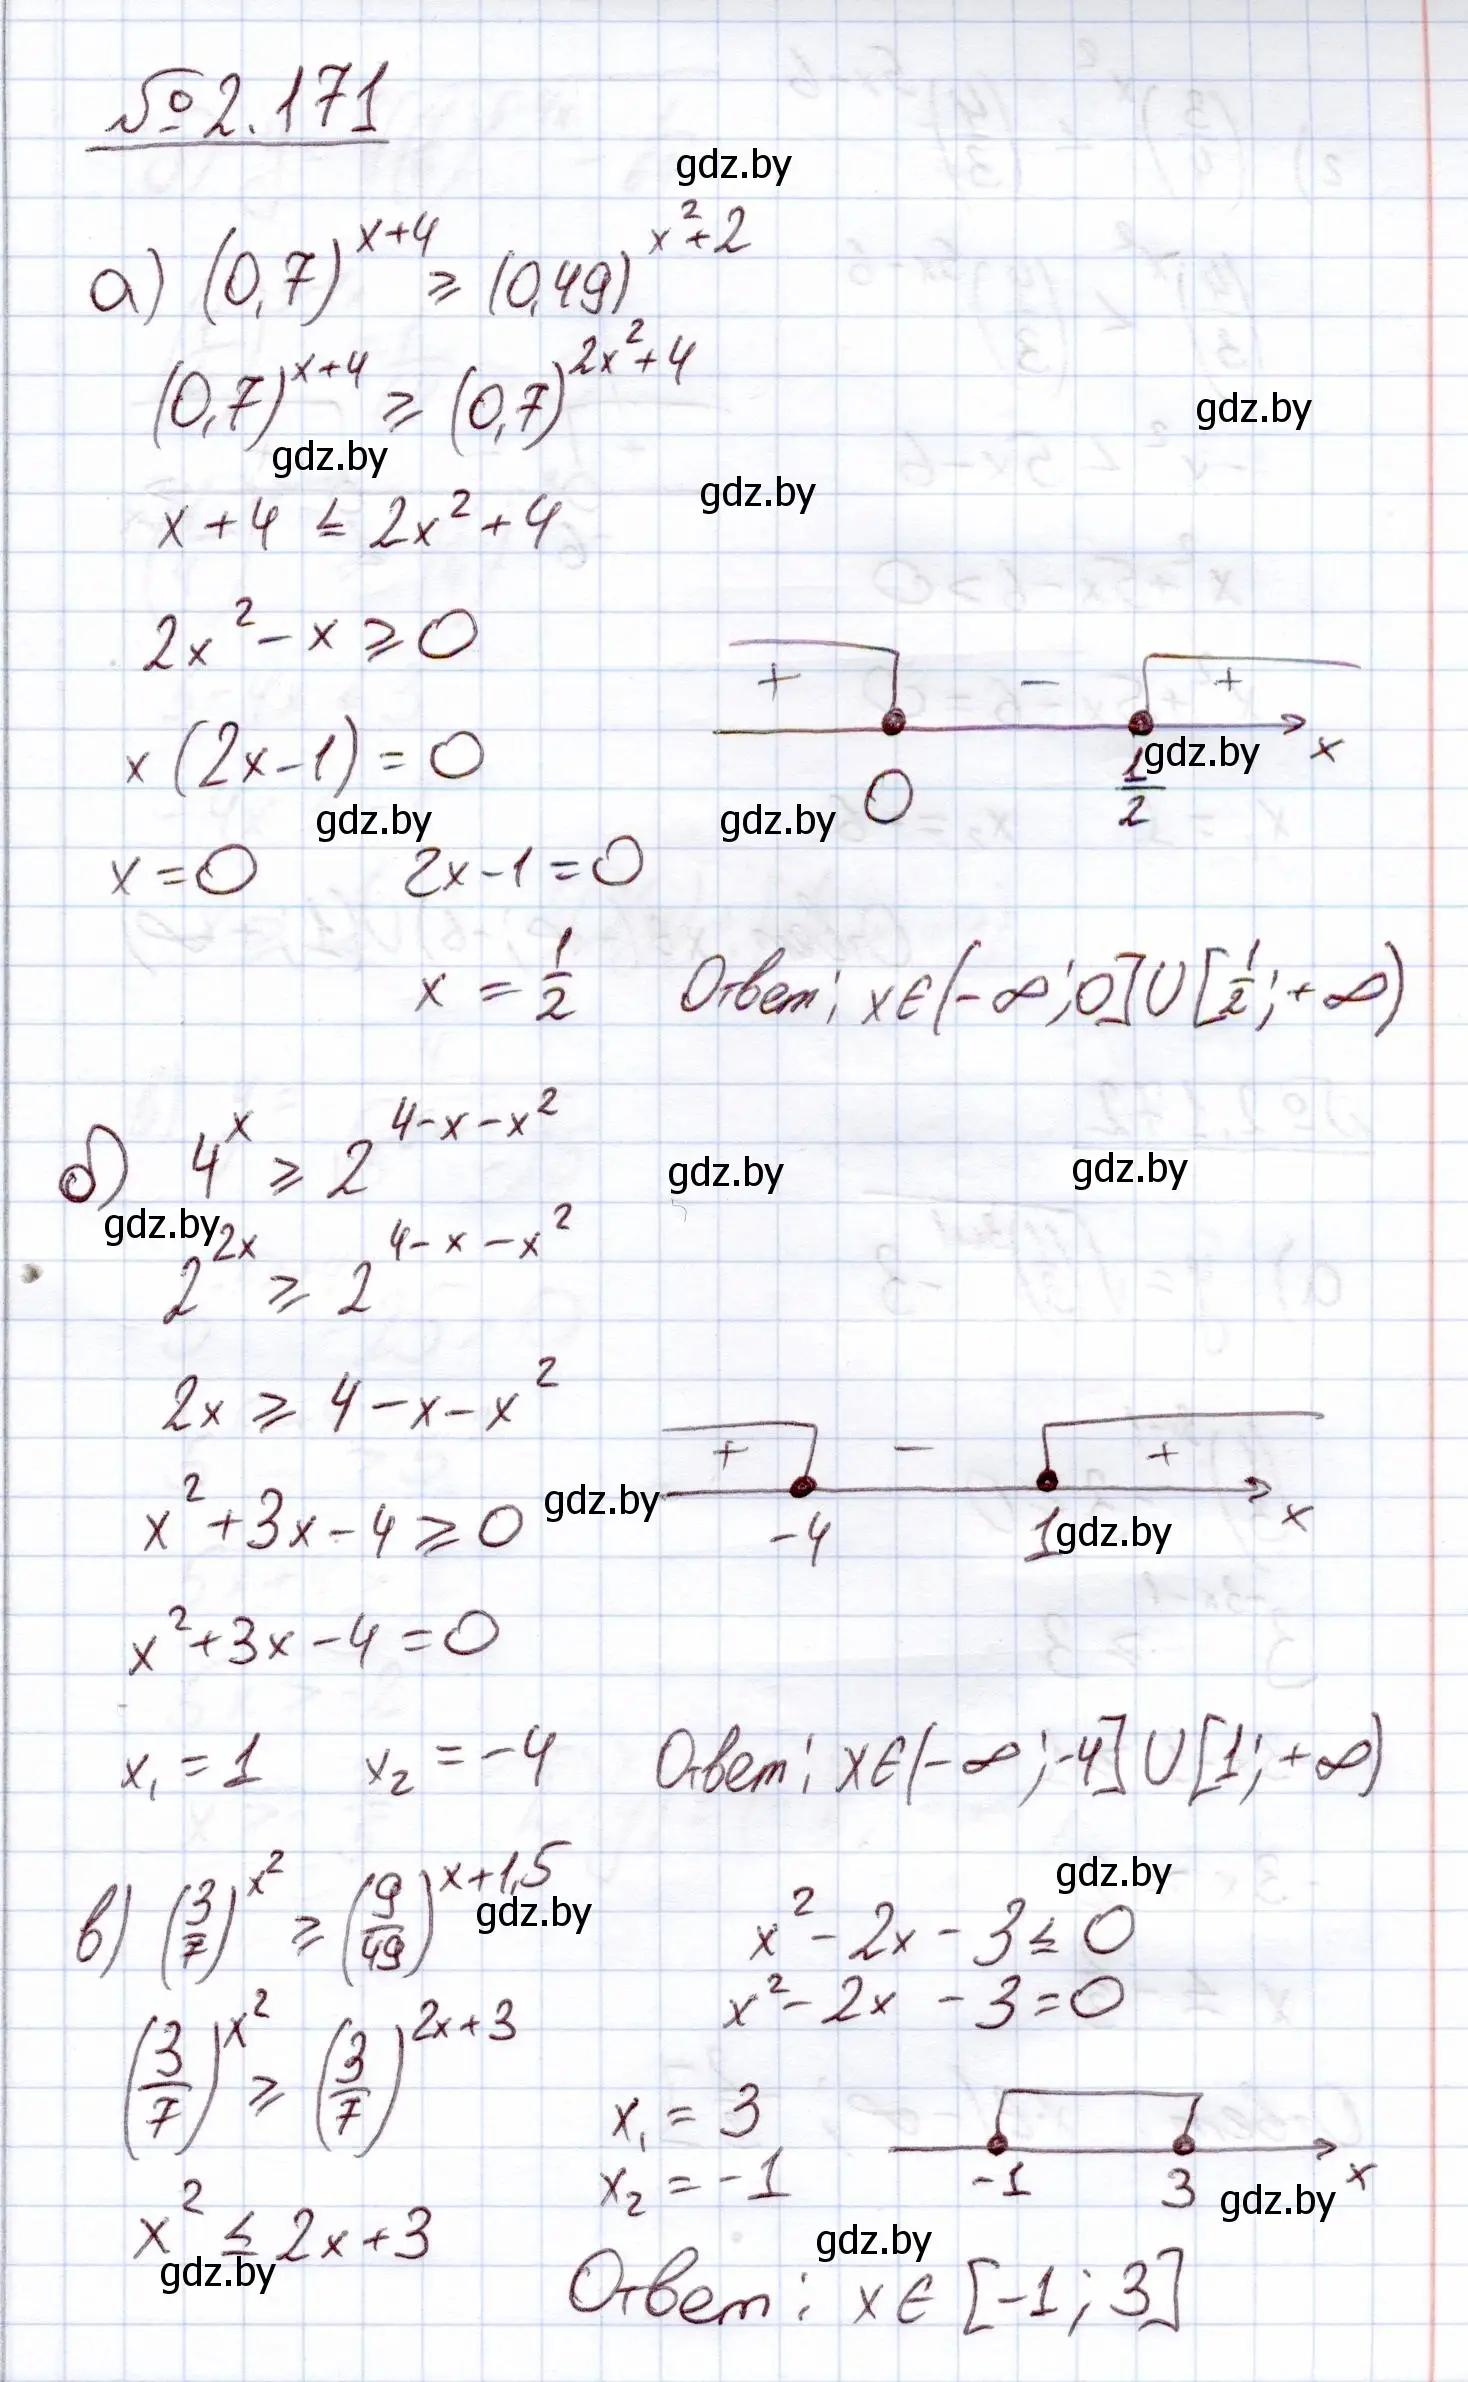 №2.171
gdz.by
а) (0,7)^(x+4) ≥ (0,49)^(x²+2)
(0,7)^(x+4) ≥ (0,7)^(2x²+4)
gdz.by
gdz.by
gdz.by
x+4 ≤ 2x²+4
2x² - x ≥ 0
+ - +
x(2x-1) = 0
0 1/2 x
gdz.by
gdz.by
gdz.by
x = 0 2x-1 = 0
x = 1/2 Ответ: x∈(-∞;0]∪[1/2;+∞)
б) 4^x ≥ 2^(4-x-x²)
gdz.by
gdz.by
gdz.by
2^(2x) ≥ 2^(4-x-x²)
2x ≥ 4-x-x²
+ - +
x²+3x-4 ≥ 0
gdz.by
-4 1 x
gdz.by
x²+3x-4 = 0
x₁ = 1 x₂ = -4 Ответ: x∈(-∞;-4]∪[1;+∞)
в) (3/7)^(x²) ≥ (9/49)^(x+1,5)
gdz.by
(3/7)^(x²) ≥ (3/7)^(2x+3)
x² ≤ 2x+3
gdz.by
gdz.by
x²-2x-3 ≤ 0
x²-2x-3=0
x₁ = 3
x₂ = -1
-1 3 x
gdz.by
gdz.by
Ответ: x∈[-1;3]